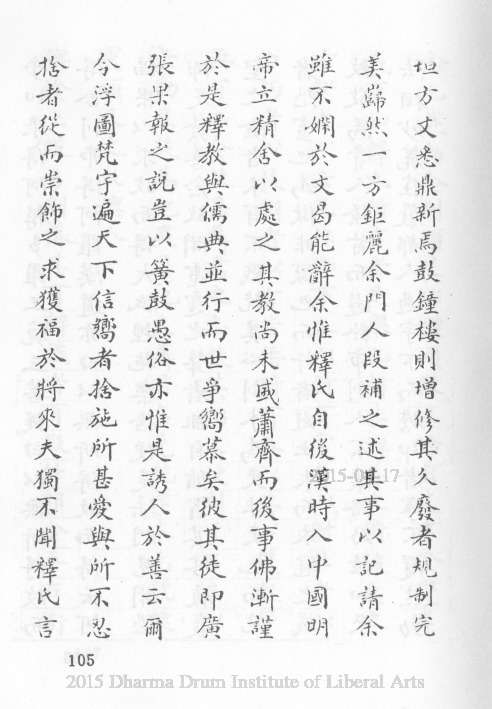 垣方丈悉鼎新焉鼓鐘樓則增修其久廢者規制完
美巋然一方鉅麗余門人段補之述其事以記請余
雖不嫻於文曷能辭余惟釋氏自後漢時入中國明
帝立精舍以處之其教尚未盛蕭齊而後事佛漸謹
於是釋教與儒典並行而世爭嚮慕矣彼其徒即廣
張果報之說豈以簧鼓愚俗亦惟是誘人於善云爾
今浮圖梵宇遍天下信嚮者捨施所甚愛與所不忍
捨者從而崇飾之求獲福於將來夫獨不聞釋氏言
105
2015 Dharma Drum Institute of Liberal Arts